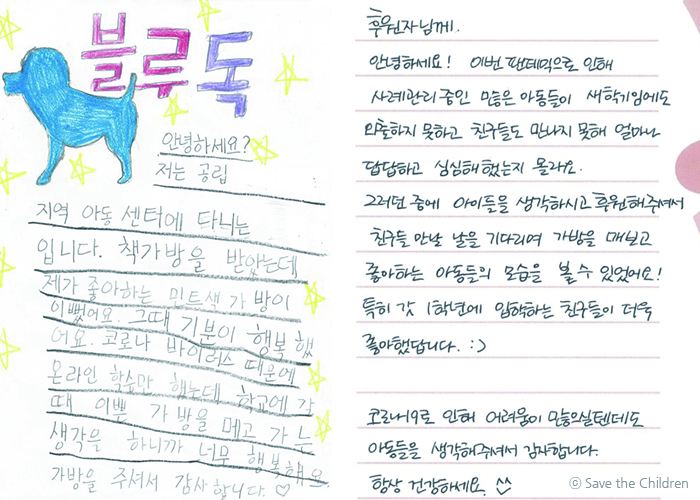 블루독
안녕하세요?
저는 공립
지역 아동센터에 다니는
입니다. 책가방을 받았는데
제가 좋아하는 민트색 가방이
이뻤어요. 그때 기분이 행복했
어요. 코로나 바이러스 때문에
온라인 학습만 했는데 학교에 갈
때 이쁜 가방을 메고 가는
생각을 하니까 너무 행복해요
가방을 주셔서 감사합니다. ♡
후원자님께.
안녕하세요! 이번 팬데믹으로 인해
사례관리 중인 많은 아동들이 새학기임에도
외출하지 못하고 친구들도 만나지 못해 얼마나
답답하고 심심해했는지 몰라요.
그러던 중에 아이들을 생각하시고 후원해주셔서
친구들 만날 날을 기다리며 가방을 매보고
좋아하는 아동들의 모습을 볼 수 있었어요!
특히 갓 1학년에 입학하는 친구들이 더욱
좋아했답니다. :)
코로나19로 인해 어려움이 많으실텐데도
아동들을 생각해주셔서 감사합니다.
항상 건강하세요. ^^
ⓒ Save the Children